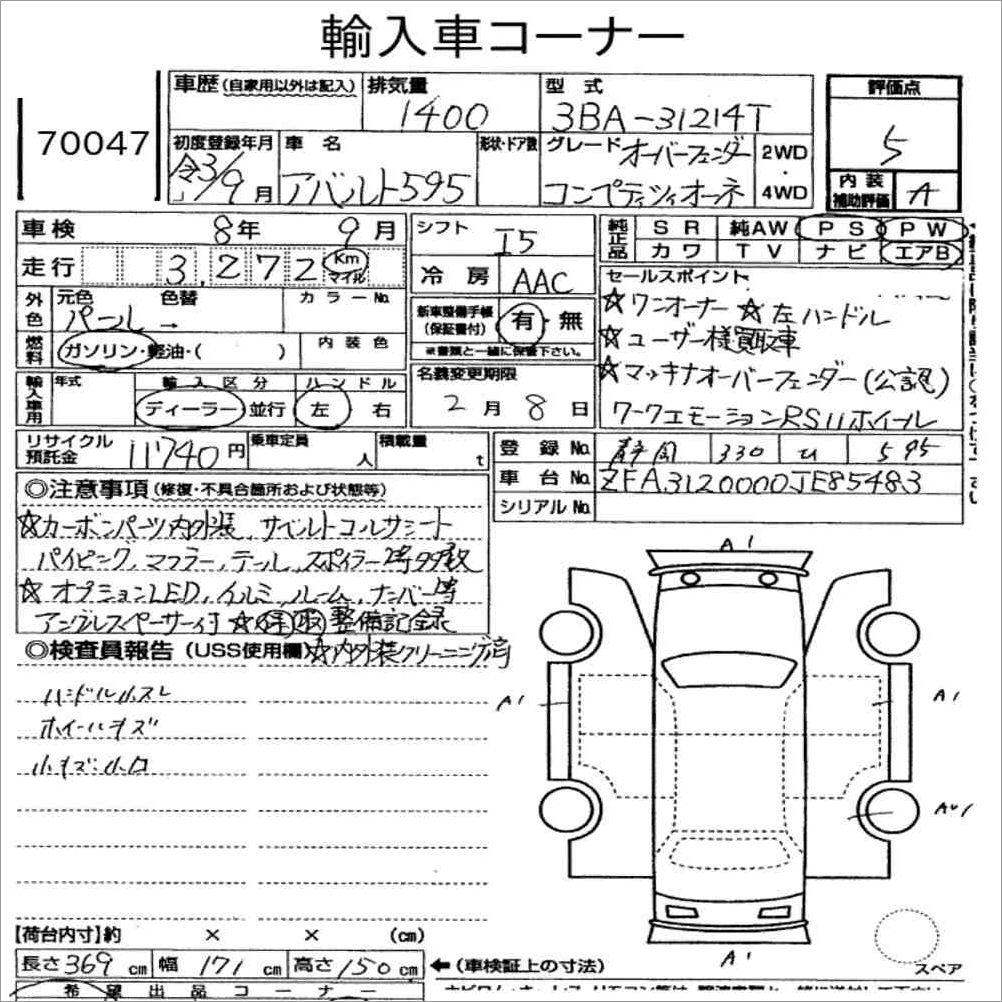 輸入車コーナー
70047
車歴 (自家用以外は記入)
排気量
1400
型式
3BA-31214T
評価点
5
初度登録年月
令3/9月
車名
アバルト595
形状・ドア数
グレード オーバーフェンダー
コンペティツィオーネ
2WD
4WD
内装
補助評価
A
車検
8年 9月
走行
3,272 Km
マイル
外色
元色
パール →
色替
カラーNo.
燃料
ガソリン・軽油・( )
内装色
輸入車用
年式
輸入区分
ディーラー 並行
ハンドル
左 右
シフト
I5
冷房
AAC
新車整備手帳
(保証書付)
有・無
※書類と一緒に保管下さい。
名義変更期限
2月8日
純正品
SR 純AW PS PW
カワ TV ナビ エアB
セールスポイント
☆ワンオーナー ☆左ハンドル
☆ユーザー様買取車
☆マッキナオーバーフェンダー(公認)
ワークエモーションRS11ホイール
リサイクル
預託金
11740円
乗車定員
人
積載量
t
登録No.
静岡 330 595
車台No.
ZFA3120000JE85483
シリアルNo.
◎注意事項 (修復・不具合箇所および状態等)
☆カーボンパーツ内外装、サベルトコルサシート
パイピング、マフラー、テール、スポイラー等多数
☆オプションLED、イルミ、ルーム、ナンバー等
アングルスペーサー付 ☆保 取 整備記録
◎検査員報告 (USS使用欄) ☆内外装クリーニング済
ハンドル小スレ
ホイールキズ
小キズ小凹
A1
A1
A1
A1
【荷台内寸】約 × × (cm)
長さ369cm
幅171cm
高さ150cm
←(車検証上の寸法)
スペア
希望出品コーナー